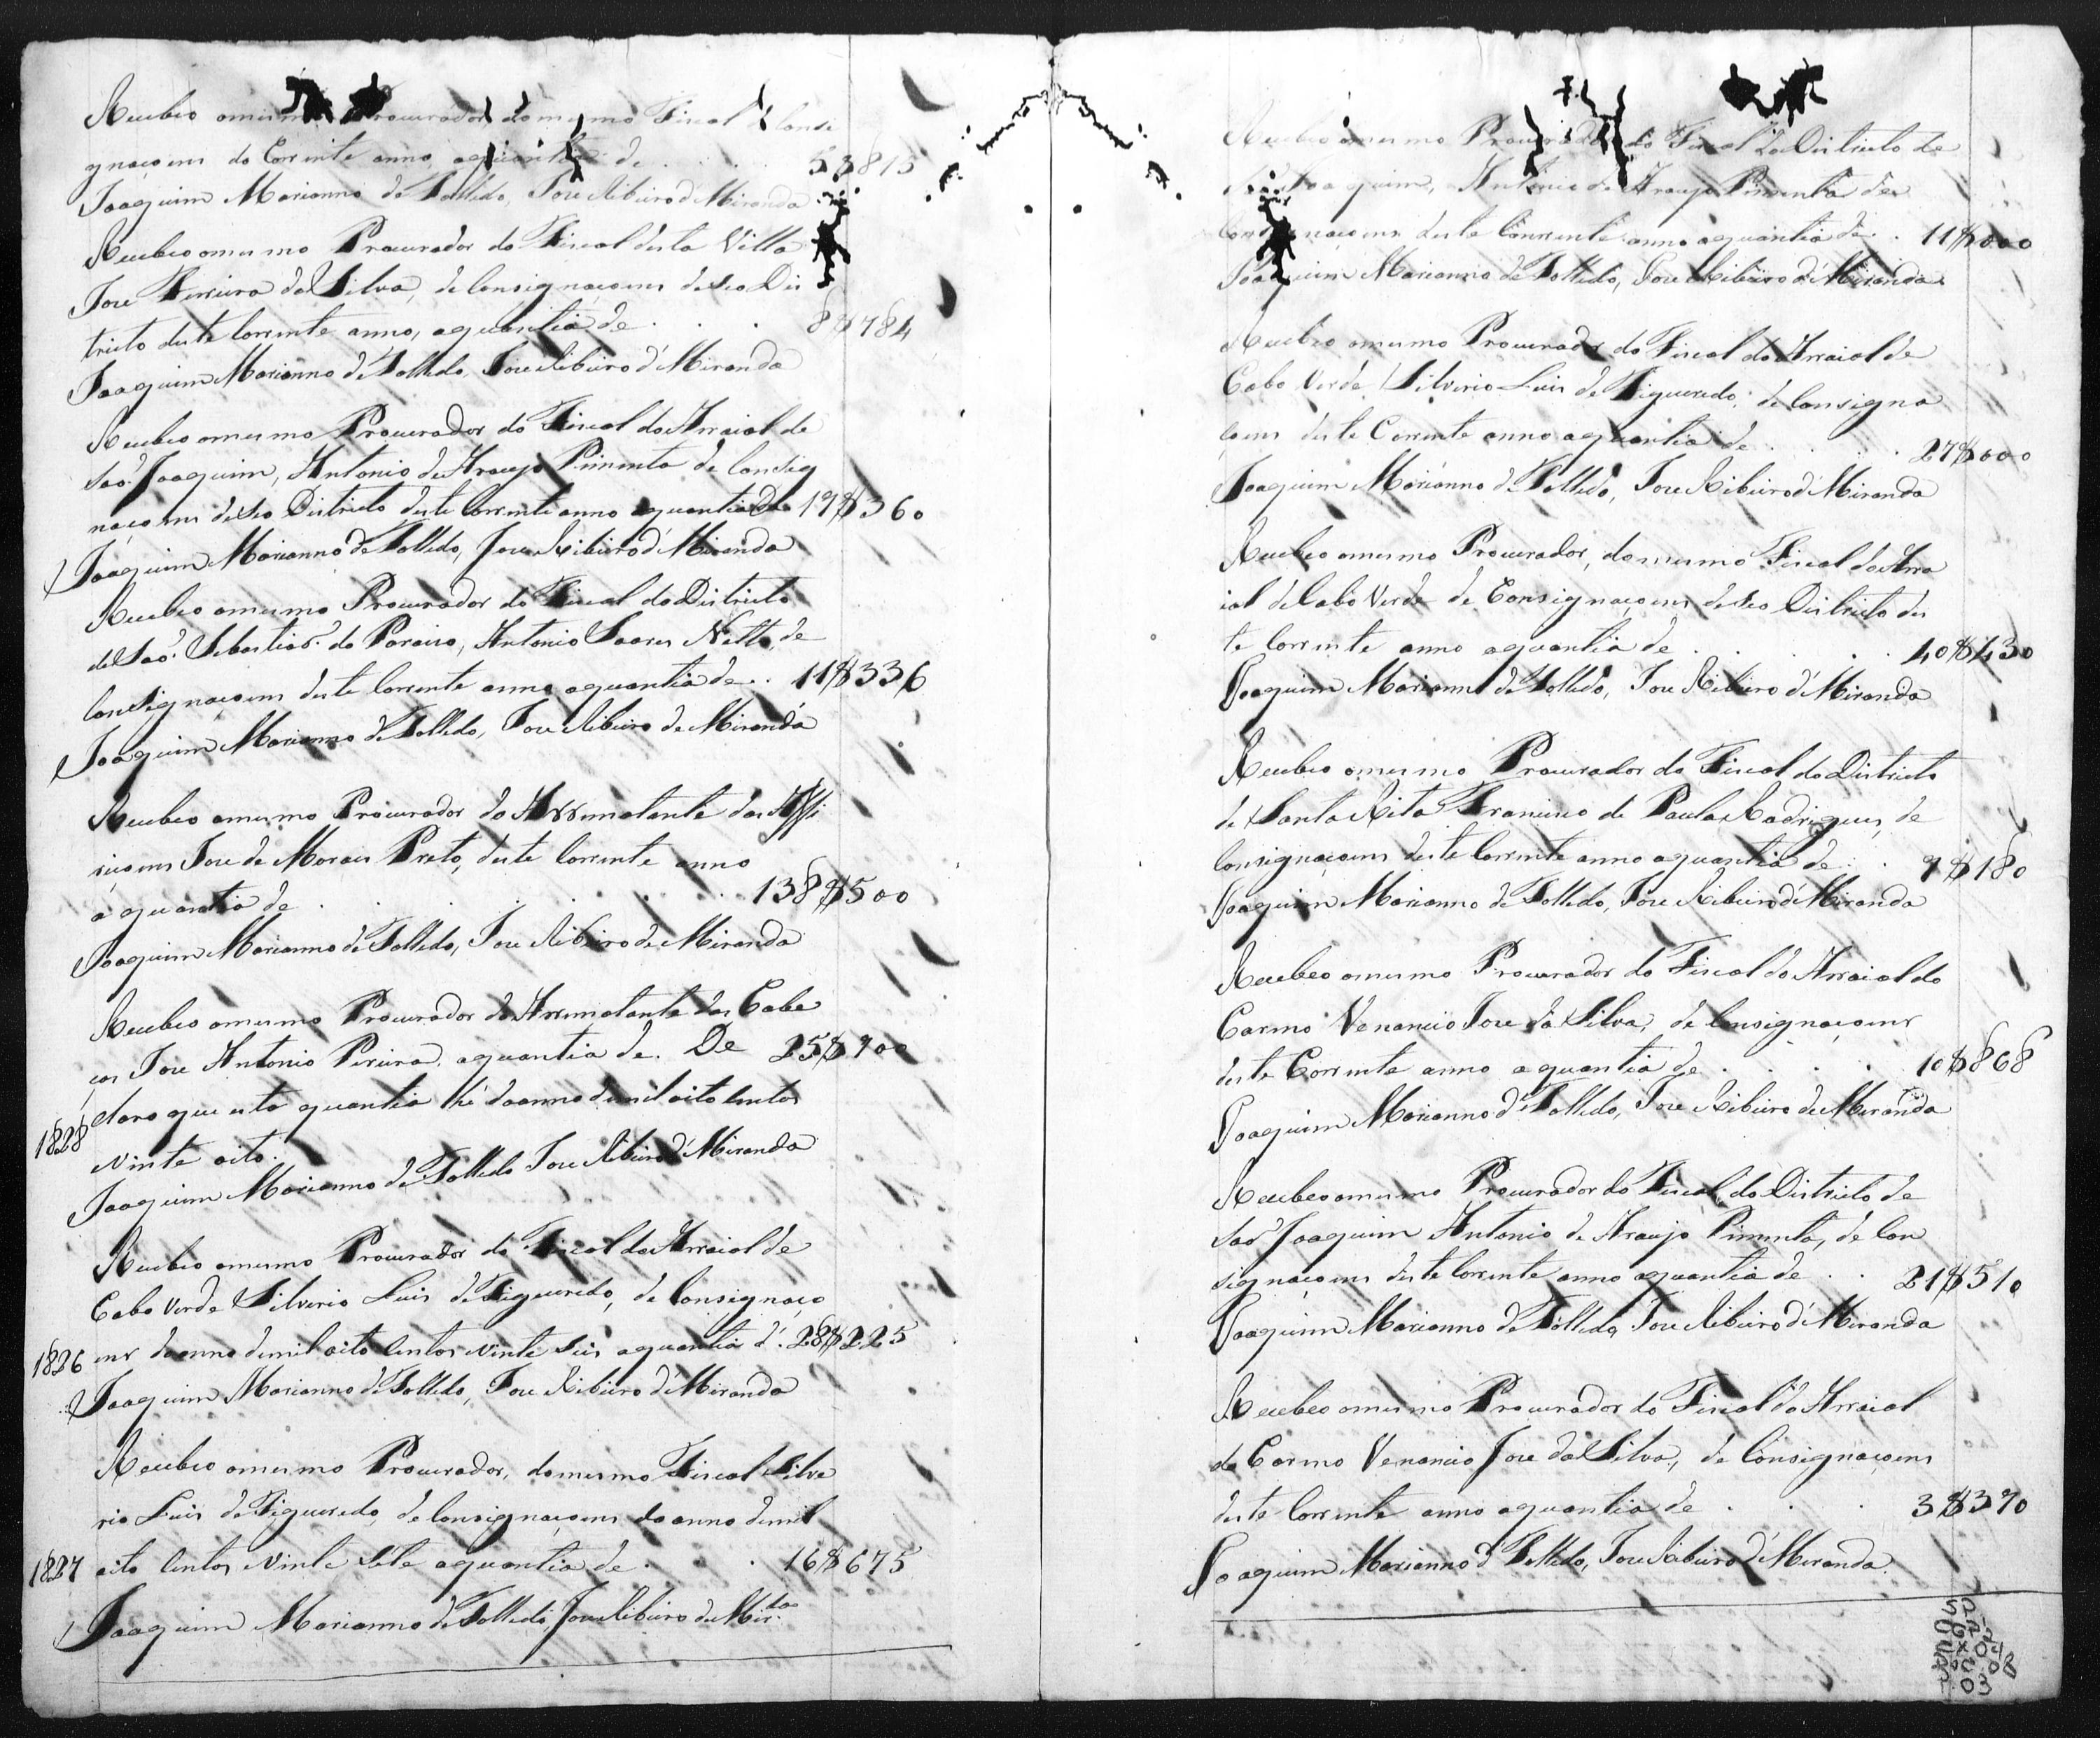 Recebeo omesmo Procurador domesmo Fiscal de Consi
gnaçoens do Corrente anno, aquantia de . . . . 5$815
Joaquim Marianno de Tolledo, Jose Ribeiro d'Miranda
Recebeo omesmo Procurador do Fiscal desta Villa
Jose Ferreira da Silva, de Consignaçoens deseo Dis
tricto deste Corrente anno, aquantia de . . . 8$784
Joaquim Marianno d'Tolledo, Jose Ribeiro d'Miranda
Recebeo omesmo Procurador do Fiscal do Arraial de
Saõ Joaquim, Antonio de Araujo Pimenta de Consig
naçoens deseo Districto deste Corrente anno aquantia de 19$360
Joaquim Marianno de Tolledo, Jose Ribeiro d'Miranda
Recebeo omesmo Procurador do Fiscal do Districto
de Saõ Sebastiaõ do Paraiso, Antonio Soares Netto, de
Consignaçoens deste Corrente anno aquantia de . . 11$336
Joaquim Marianno de Tolledo, Jose Ribeiro de Miranda
Recebeo omesmo Procurador do Arrematante das Affi
riçoens Jose de Moraes Preto, deste Corrente anno
a quantia de . . . . . . . 138$500
Joaquim Marianno de Tolledo, Jose Ribeiro de Miranda
Recebeo omesmo Procurador do Arrematante das Cabe
ças Jose Antonio Pereira, aquantia de. De 25$900
claro que esta quantia hé doanno demil oito Centos
1828 Vinte oito.
Joaquim Marianno de Tolledo Jose Ribeiro d'Miranda
Recebeo omesmo Procurador do Fiscal do Arraial de
Cabo Verde Silverio Luis de Figueredo, de Consignaço
1826 ens doanno demil oito Centos Vinte Seis aquantia d'. 28$225
Joaquim Marianno de Tolledo, Jose Ribeiro d'Miranda
Recebeo omesmo Procurador, domesmo Fiscal Silve
rio Luis de Figueredo, de Consignaçoens do anno demil
1827 oito Centos Vinte Sete aquantia de . . . 16$675
Joaquim Marianno de Tolledo, Jose Ribeiro de Mir.da
Recebeo omesmo Procurador do Fiscal do Districto de
Joaquim, Antonio de Araujo Pimenta de
Consignaçoens deste Corrente anno aquantia de . 11$000
Joaquim Marianno de Tolledo, Jose Ribeiro d'Miranda
Recebeo omesmo Procurador do Fiscal do Arraial de
Cabo Verde, Silverio Luis de Figueredo, de Consigna
çoens deste Corrente anno aquantia de . . . . 27$000
Joaquim Marianno d'Tolledo, Jose Ribeiro d'Miranda
Recebeo omesmo Procurador, domesmo Fiscal do Arra
ial de Cabo Verde de Consignaçoens deseo Districto des
te Corrente anno aquantia de . . . . 40$430
Joaquim Marianno de Tolledo, Jose Ribeiro d'Miranda
Recebeo omesmo Procurador do Fiscal do Districto
de Santa Rita Francisco de Paula Rodrigues, de
Consignaçoens deste Corrente anno aquantia de . . 9$180
Joaquim Marianno de Tolledo, Jose Ribeiro d'Miranda
Recebeo omesmo Procurador do Fiscal do Arraial do
Carmo Venancio Jose da Silva, de Consignaçoens
deste Corrente anno aquantia de . . . . 10$868
Joaquim Marianno d'Tolledo, Jose Ribeiro de Miranda
Recebeo omesmo Procurador do Fiscal do Districto de
Saõ Joaquim Antonio de Araujo Pimenta, de Con
signaçoens deste Corrente anno aquantia de . . 21$510
Joaquim Marianno de Tolledo, Jose Ribeiro d'Miranda
Recebeo omesmo Procurador do Fiscal do Arraial
do Carmo Venancio Jose da Silva, de Consignaçoens
deste Corrente anno aquantia de . . . 3$370
Joaquim Marianno d'Tolledo, Jose Ribeiro d'Miranda.